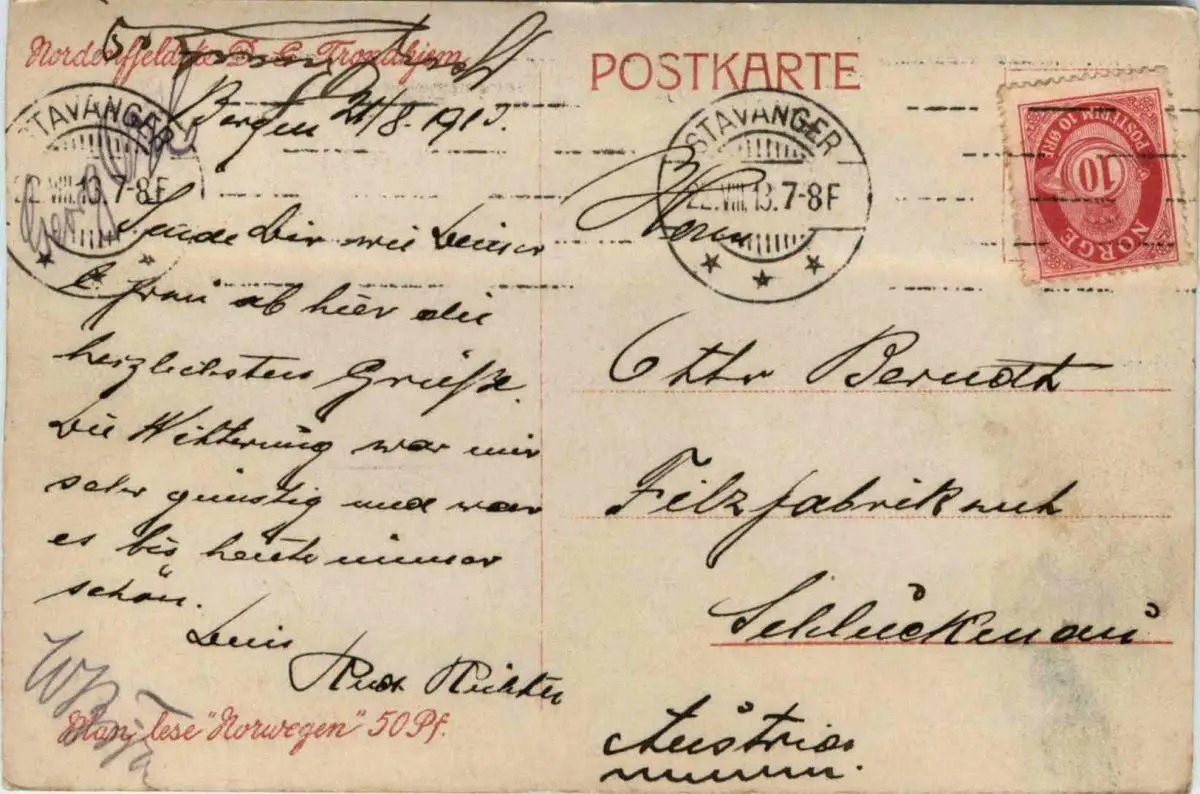 Nordenfjeldske D. S. Trondhjem
POSTKARTE
Bergen 21/8. 1913.
STAVANGER
22.VIII.13.7-8F
STAVANGER
22.VIII.13.7-8F
NORGE
POSTFRIM 10 ØRE
10
Sende Dir wie Deiner
l. Frau ab hier die
herzlichsten Grüße.
Die Witterung war mir
sehr günstig und war
es bis heute immer
schön.
Dein
Richter
Man lese "Norwegen" 50 Pf.
Herrn
Otto Berndt
Filzfabrikant
Schluckenau
Austria